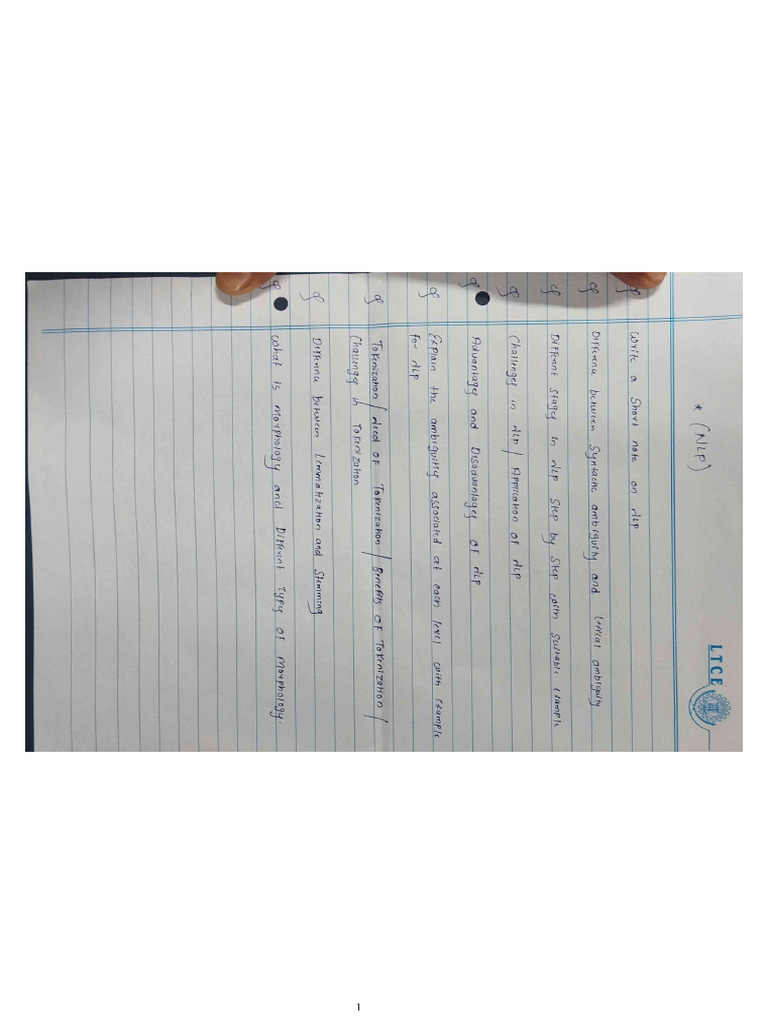 LTCE
* (NLP)
Q Write a Short note on NLP
Q Difference between Syntactic ambiguity and Lexical ambiguity
Q Different stages in NLP Step by Step with Suitable Example
Q Challenges in NLP / Application of NLP
Q Advantages and Disadvantages of NLP
Q Explain the ambiguity associated at each level with Example
for NLP
Q Tokenization / Need of Tokenization / Benefits of Tokenization /
Challenges in Tokenization
Q Difference between Limmatization and Stemming
Q What is Morphology and Different Types of Morphology
1